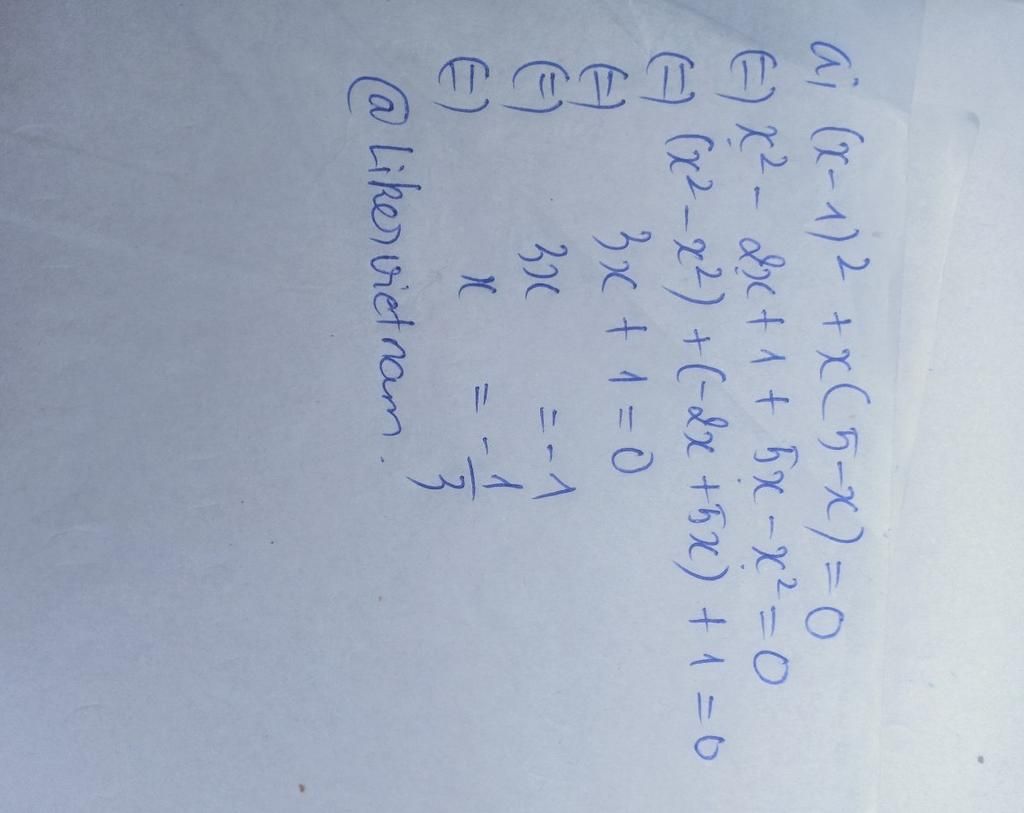 a, (x-1)² + x(5-x) = 0
(=) x² - 2x + 1 + 5x - x² = 0
(=) (x² - x²) + (-2x + 5x) + 1 = 0
(=) 3x + 1 = 0
(=) 3x = -1
(=) x = -1/3
@Likenvietnam.